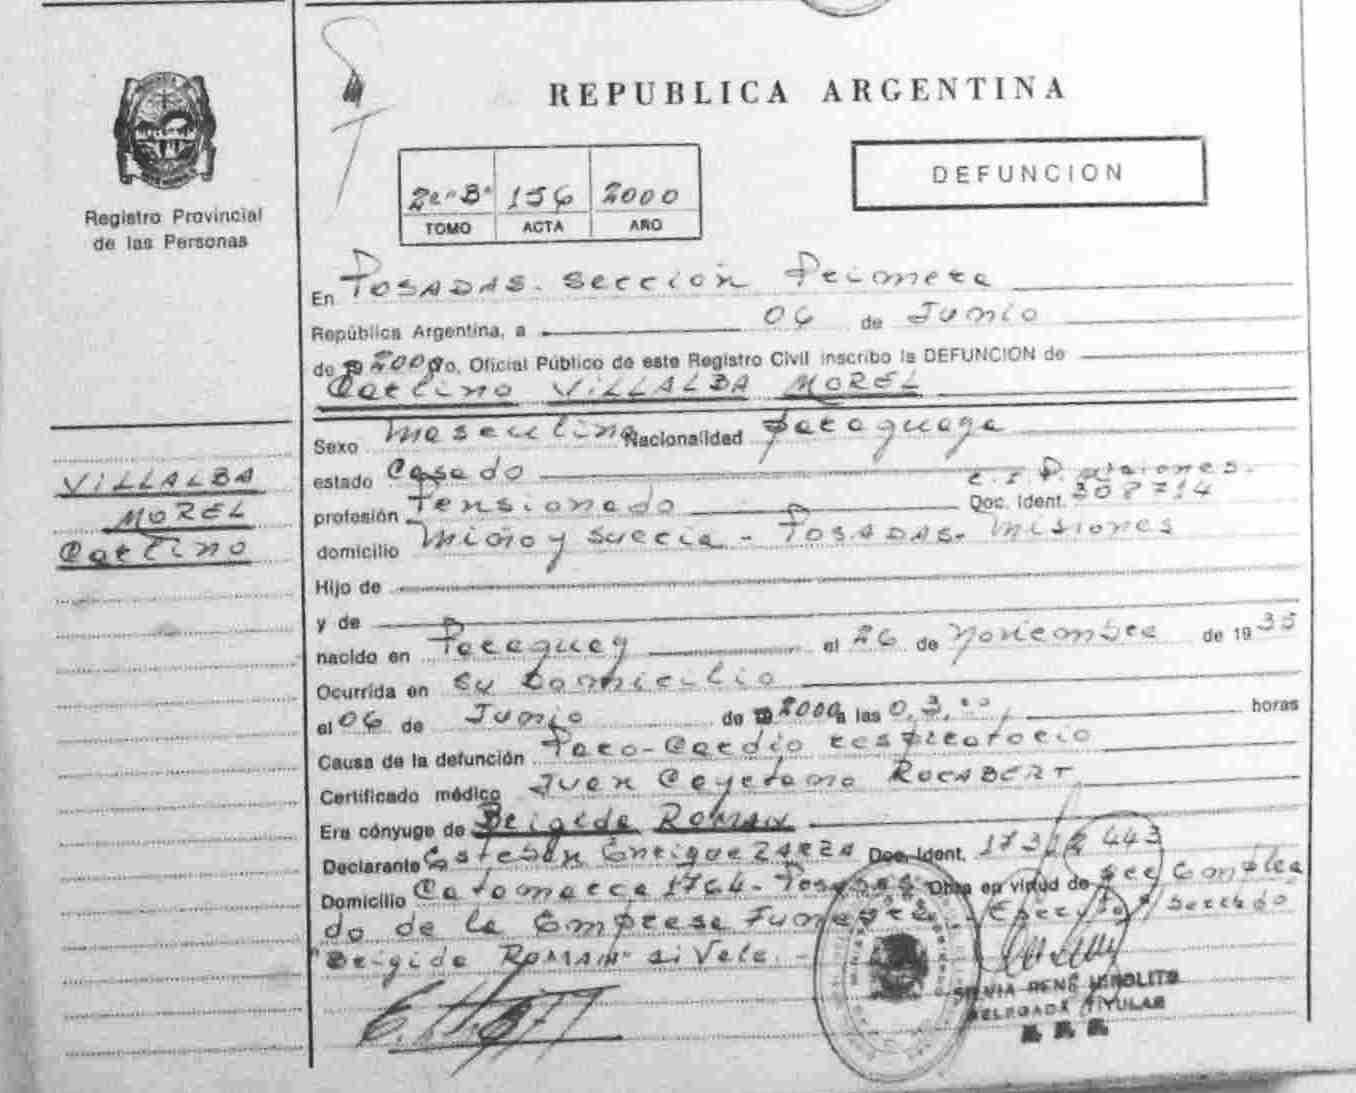 REPUBLICA ARGENTINA
DEFUNCION
Registro Provincial
de las Personas
2000
TOMO ACTA AÑO
En POSADAS. Sección Primera
República Argentina, a 06 de Junio
de 2000 yo, Oficial Público de este Registro Civil inscribo la DEFUNCION de
Catlino VILLALBA MOREL
Sexo Masculino Nacionalidad paraguaya
estado Casado
profesión Pensionado Doc. Ident.
domicilio Miño y Suecia - POSADAS. MISIONES
VILLALBA
MOREL
Catlino
Hijo de
y de
nacido en Paraguay el 26 de Noviembre de 1935
Ocurrida en su Domicilio
el 06 de Junio de 2000 a las 0,3,00 horas
Causa de la defunción Paro-Cardio respiratorio
Certificado médico Juan Cayetano ROCABERT
Era cónyuge de Brigida ROMAN
Declarante Esteban Enrique ZARZA Doc. Ident. 443
Domicilio Catamarca 1764 - Posadas Obra en virtud de ser Emplea
do de la Empresa Funebre
"Brigida ROMAN" si Vale. -
SILVIA RENE HIPOLITO
DELEGADA TITULAR